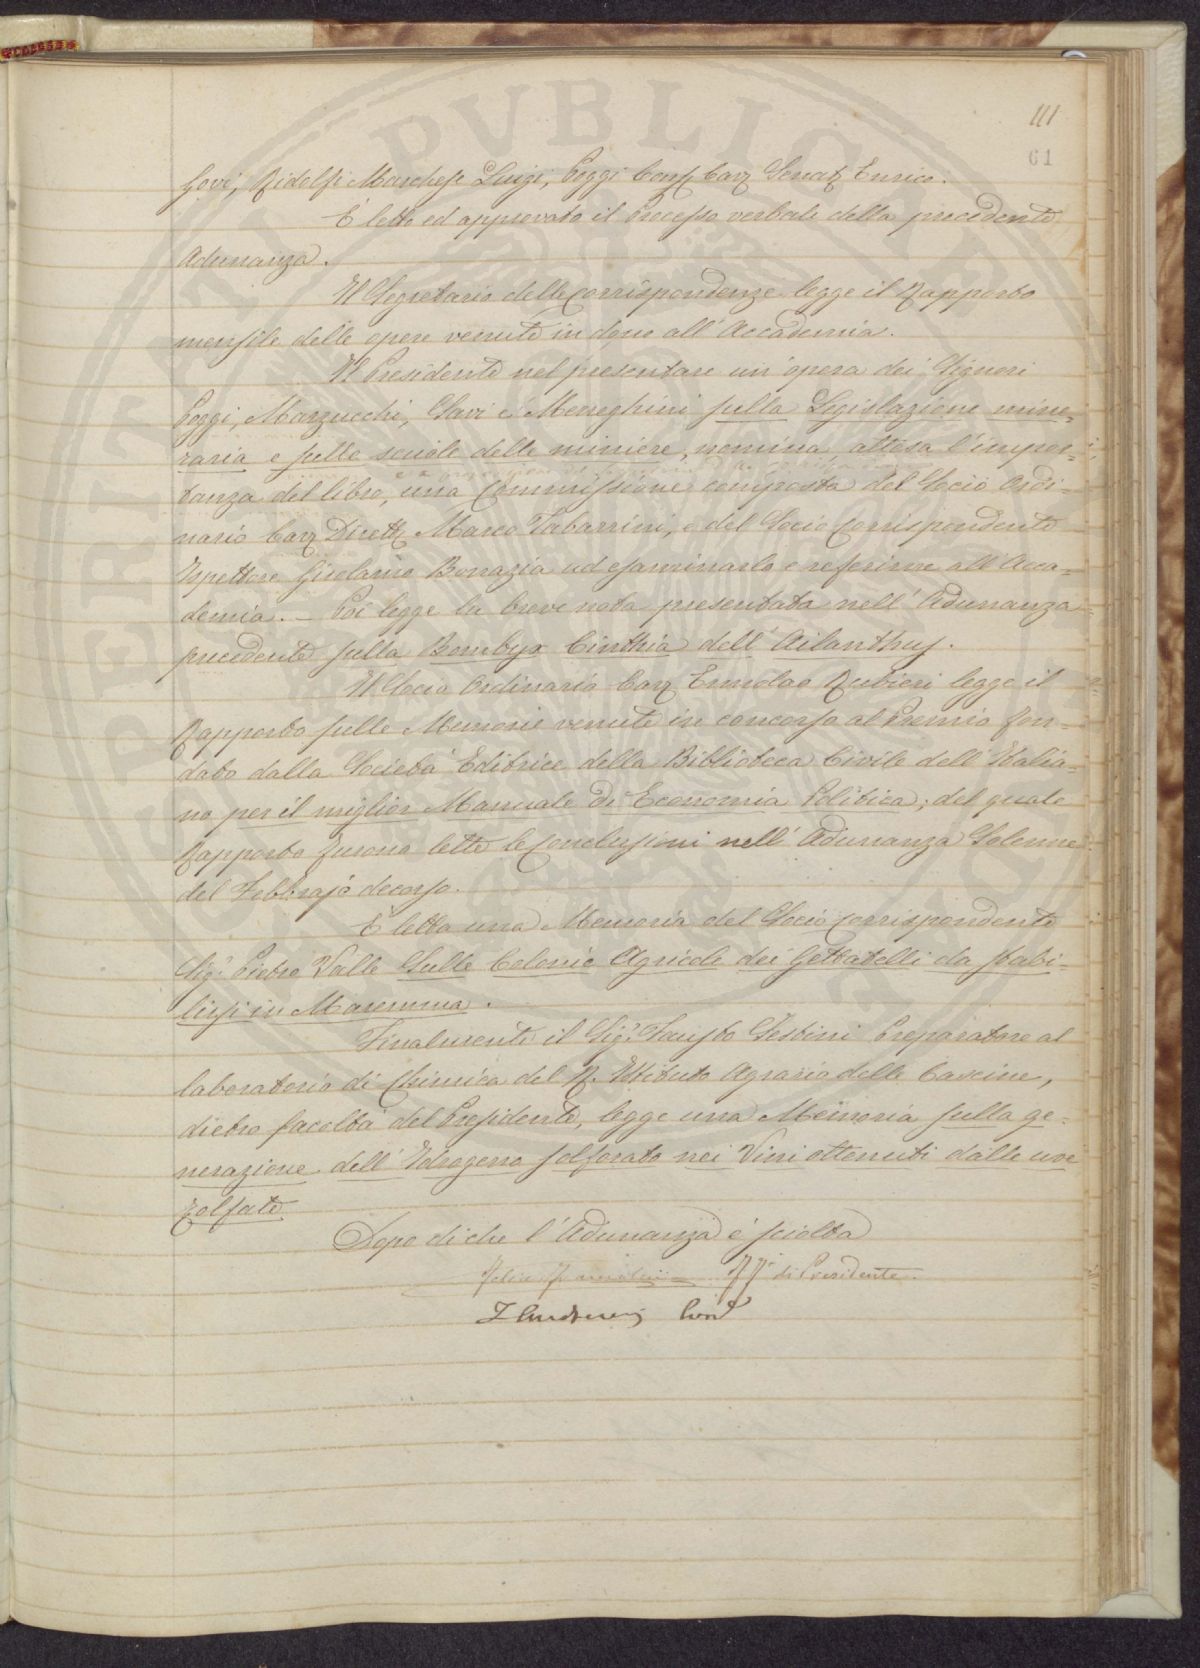 111
61
Govi, Ridolfi Marchese Luigi, Poggi Consr Cavr Senatr Enrico.
È letto ed approvato il Processo verbale della precedente
Adunanza.
Il Segretario delle Corrispondenze legge il Rapporto
mensile delle opere venute in dono all'Accademia.
Il Presidente nel presentare un'opera dei Signori
Poggi, Marzucchi, Savi e Meneghini sulla Legislazione mine=
raria e sulle scuole delle miniere, nomina, attesa l'impor=
tanza del libro, una Commissione composta del Socio Ordi=
nario Cavr Direttr Marco Tabarrini, e del Socio Corrispondente
Ispettore Girolamo Bonazia ad esaminarlo e riferirne all'Acca=
demia. — Poi legge la breve nota presentata nell'Adunanza
precedente sulla Bombyx Cinthia dell'Ailanthus.
Il Socio Ordinario Cavr Ermolao Rubieri legge il
Rapporto sulle Memorie venute in concorso al Premio fon=
dato dalla Società Editrice della Biblioteca Civile dell'Italia=
no per il miglior Manuale di Economia Politica; del quale
Rapporto furono lette le Conclusioni nell'Adunanza Solenne
del Febbrajo decorso.
È letta una Memoria del Socio Corrispondente
Sigr Pietro Valle Sulle Colonie Agricole dei Gettatelli da stabi=
lirsi in Maremma.
Finalmente il Sigr Fausto Sestini Preparatore al
laboratorio di Chimica del R. Istituto Agrario delle Cascine,
dietro facoltà del Presidente, legge una Memoria sulla ge=
nerazione dell'Idrogeno solforato nei Vini ottenuti dalle uve
zolfate
Dopo di che l'Adunanza è sciolta
Felice Francolini FF. di Presidente.
PUBLICA